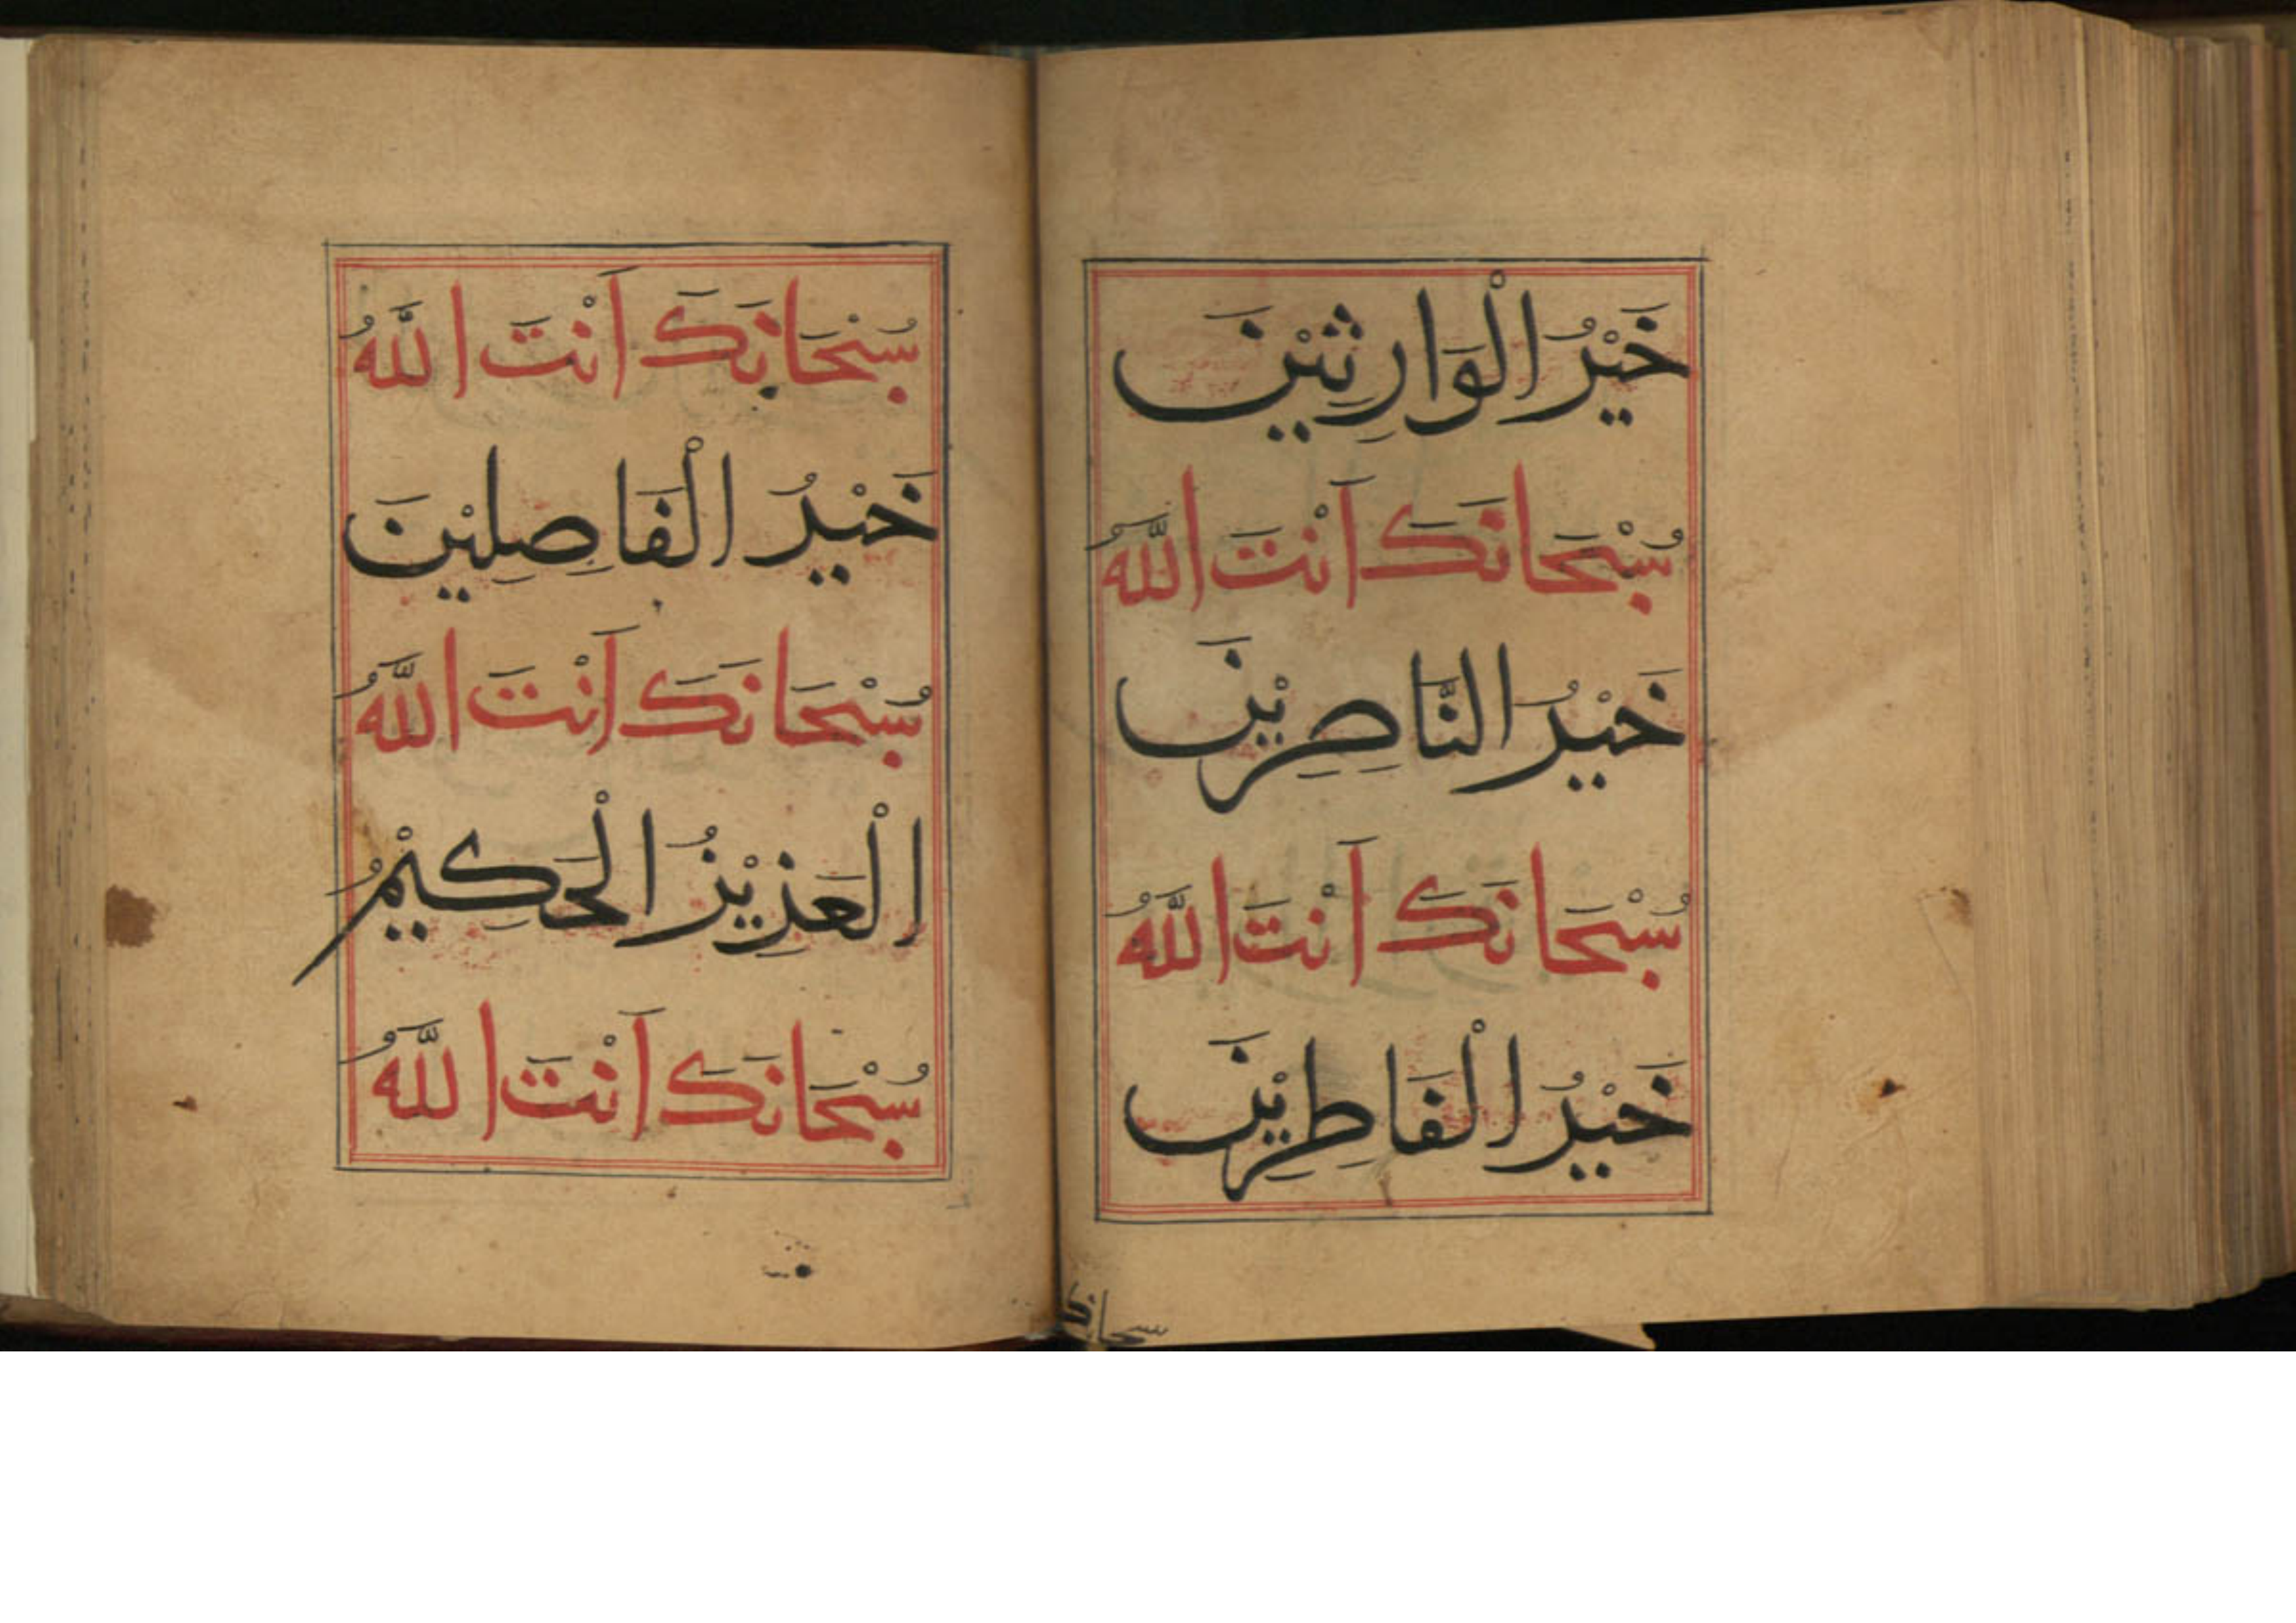 خَيْرُ الْوَارِثِيْنَ
سُبْحَانَكَ اَنْتَ اللّٰهُ
خَيْرُ النَّاصِرِيْنَ
سُبْحَانَكَ اَنْتَ اللّٰهُ
خَيْرُ الْفَاطِرِيْنَ
سبحانك
سُبْحَانَكَ اَنْتَ اللّٰهُ
خَيْرُ الْفَاصِلِيْنَ
سُبْحَانَكَ اَنْتَ اللّٰهُ
الْعَزِيْزُ الْحَكِيْمُ
سُبْحَانَكَ اَنْتَ اللّٰهُ